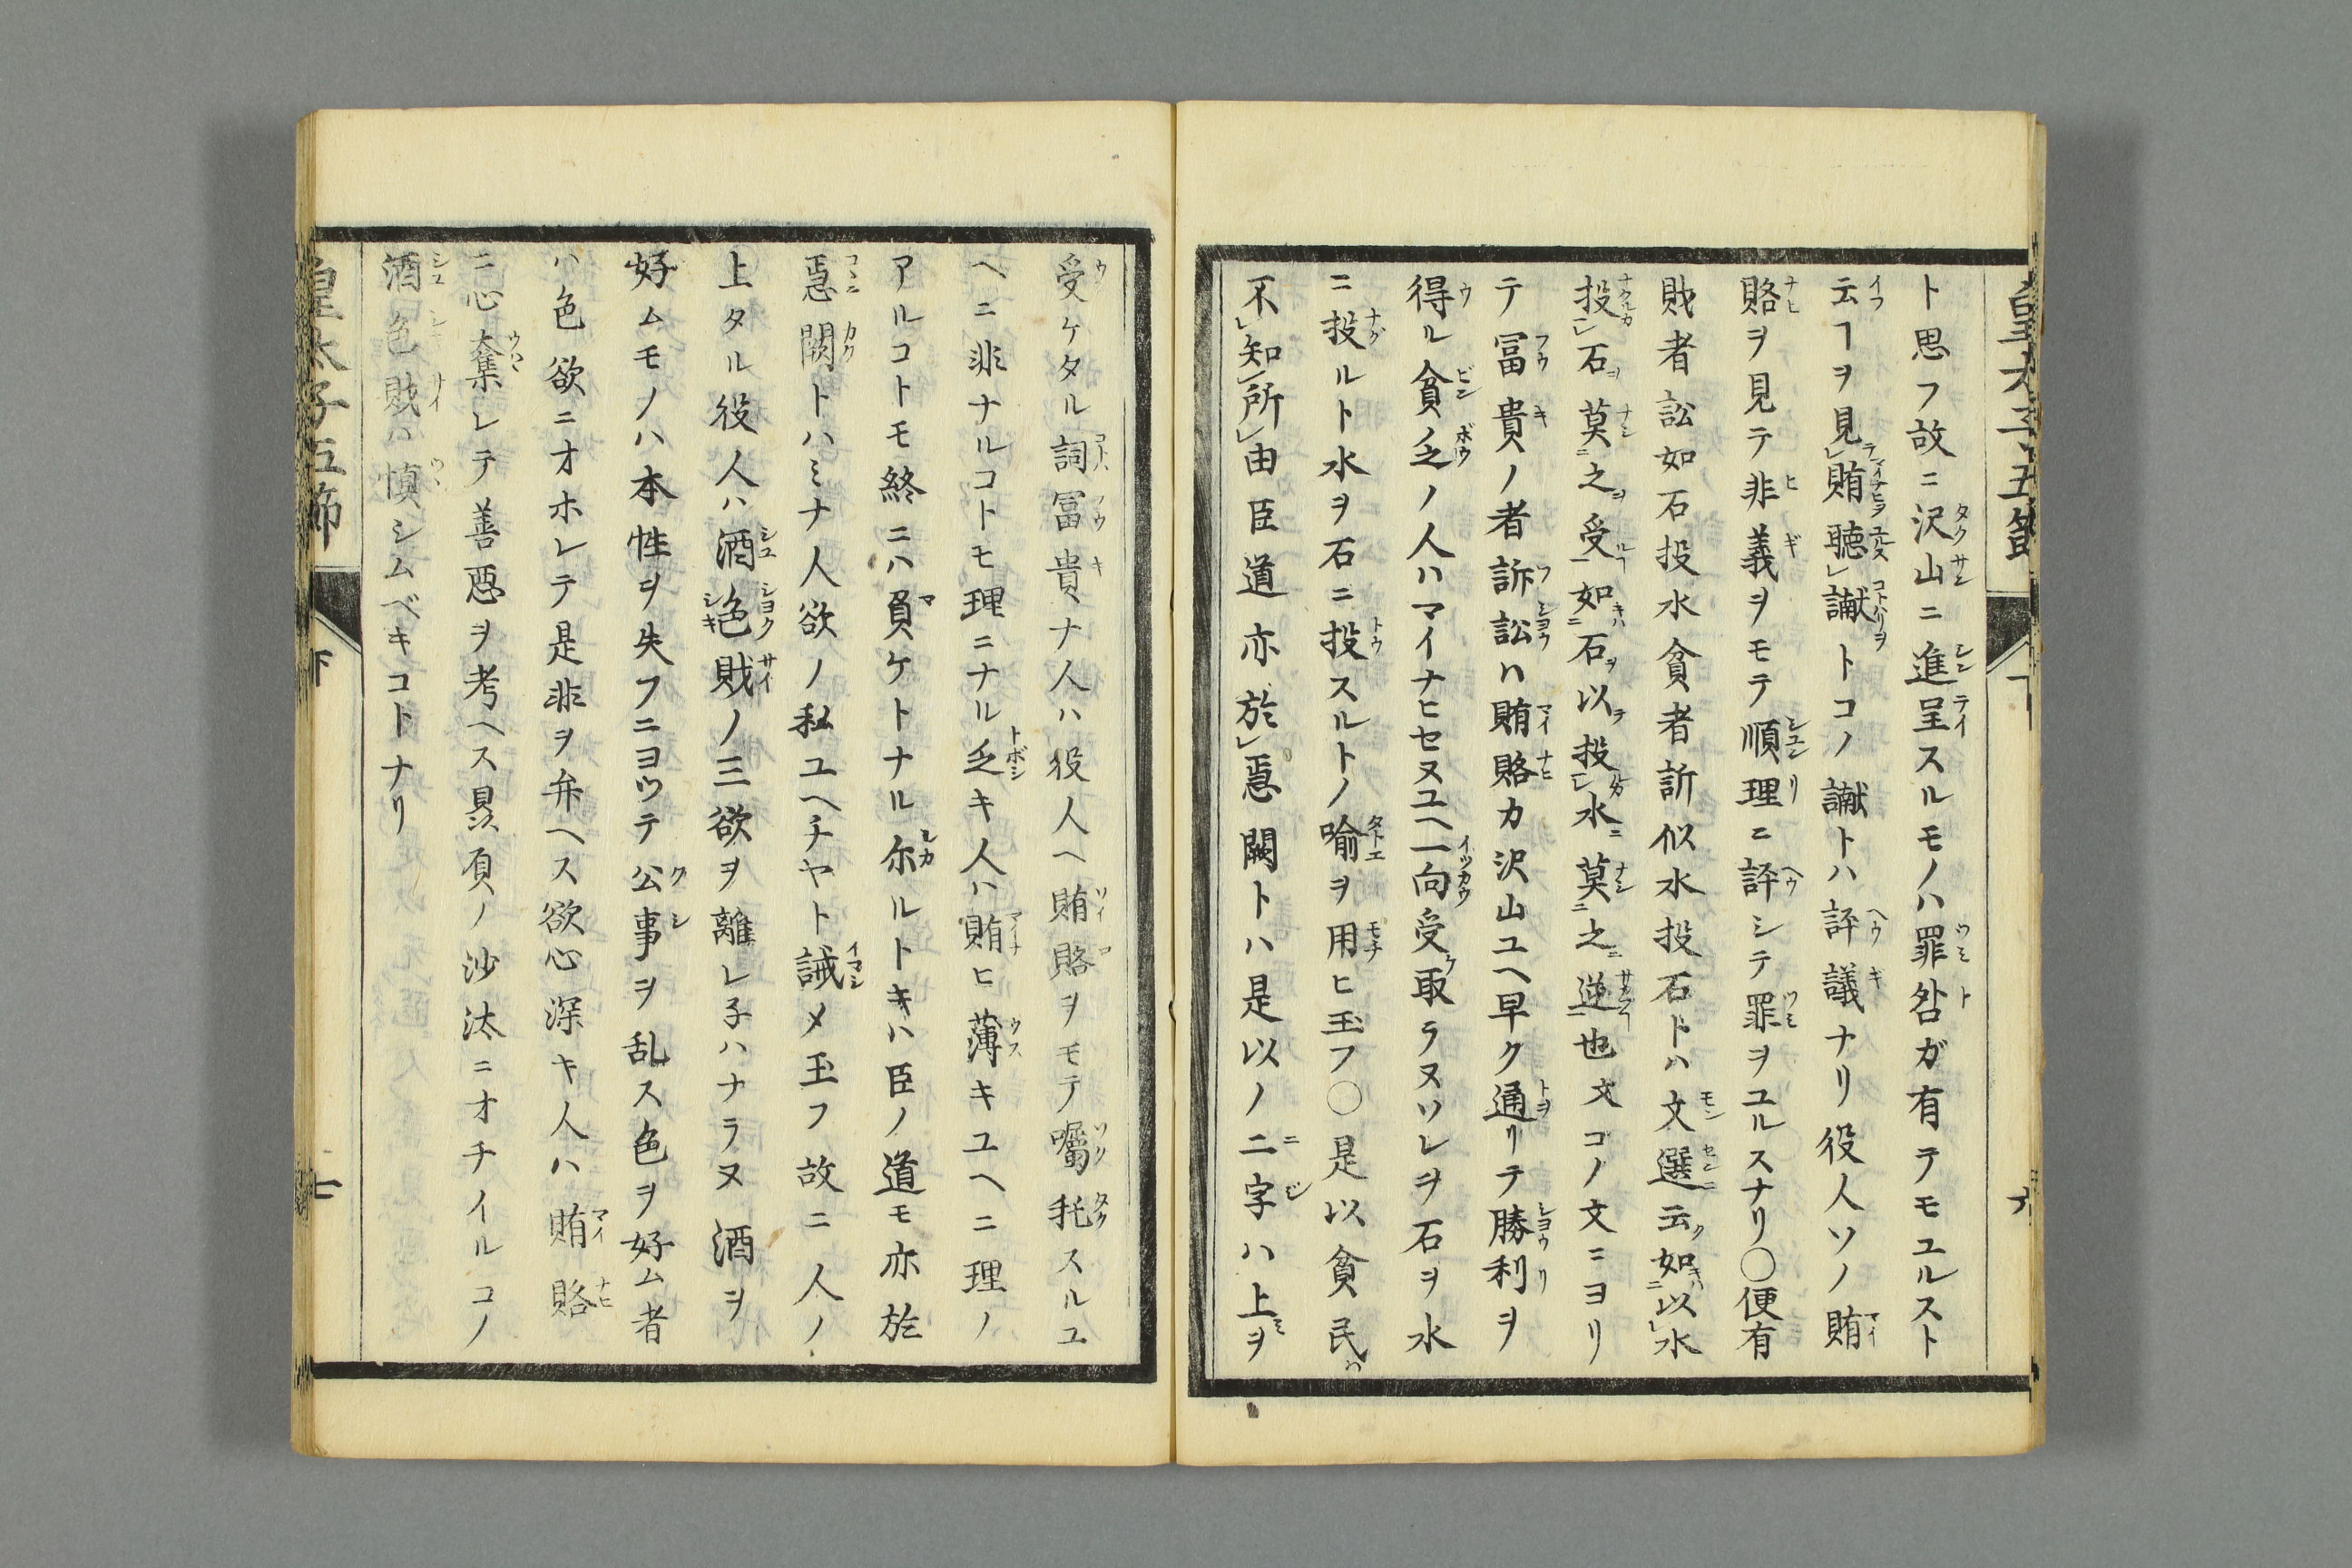 ト思フ故ニ沢山ニ進呈スルモノハ罪咎ガ有テモユルスト
云ヿヲ見賄聴讞トコノ讞トハ評議ナリ役人ソノ賄
賂ヲ見テ非義ヲモテ順理ニ評シテ罪ヲユルスナリ○便有
財者訟如石投水貧者訴似水投石トハ文選云如以水
投石莫之受如石以投水莫之逆也文コノ文ニヨリ
テ冨貴ノ者訴訟ハ賄賂カ沢山ユヘ早ク通リテ勝利ヲ
得ル貧乏ノ人ハマイナヒセヌユヘ一向受取ラヌソレヲ石ヲ水
ニ投ルト水ヲ石ニ投スルトノ喩ヲ用ヒ玉フ○是以貧民ハ
不知所由臣道亦於焉闕トハ是以ノ二字ハ上ヲ
受ケタル詞冨貴ナ人ハ役人ヘ賄賂ヲモテ囑托スルユ
ヘニ非ナルコトモ理ニナル乏キ人ハ賄ヒ薄キユヘニ理ノ
アルコトモ終ニハ負ケトナル尓ルトキハ臣ノ道モ亦於
焉闕トハミナ人欲ノ私ユヘチヤト誡メ玉フ故ニ人ノ
上タル役人ハ酒色財ノ三欲ヲ離レ子ハナラヌ酒ヲ
好ムモノハ本性ヲ失フニヨツテ公事ヲ乱ス色ヲ好ム者
ハ色欲ニオホレテ是非ヲ弁ヘス欲心深キ人ハ賄賂
ニ心奪レテ善悪ヲ考ヘス贔負ノ沙汰ニオチイルコノ
酒色財ハ慎シムベキコトナリ
皇太子五節
下
七